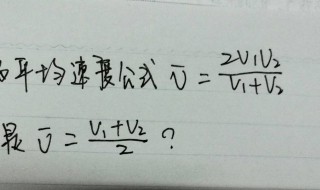 平均速度公式 v̄ = 2V₁V₂/(V₁+V₂)
是 v̄ = (V₁+V₂)/2 ?